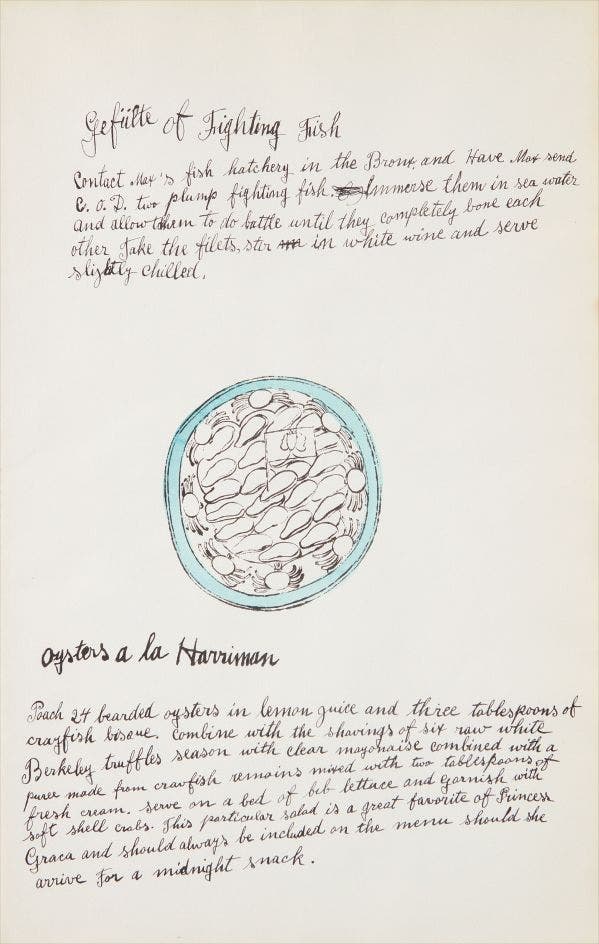 Gefülte of Fighting Fish
Contact Max's fish hatchery in the Bronx, and Have Max send
C.O.D. two plump fighting fish. Immerse them in sea water
and allow them to do battle until they completely bone each
other Take the filets, stir in white wine and serve
slightly chilled.
Oysters a la Harriman
Poach 24 bearded oysters in lemon juice and three tablespoons of
crayfish bisque. Combine with the shavings of six raw white
Berkeley truffles season with clear mayonaise combined with a
puree made from crawfish remains mixed with two tablespoons of
fresh cream. serve on a bed of beb lettuce and garnish with
soft shell crabs. This particular salad is a great favorite of Princess
Graca and should always be included on the menu should she
arrive for a midnight snack.